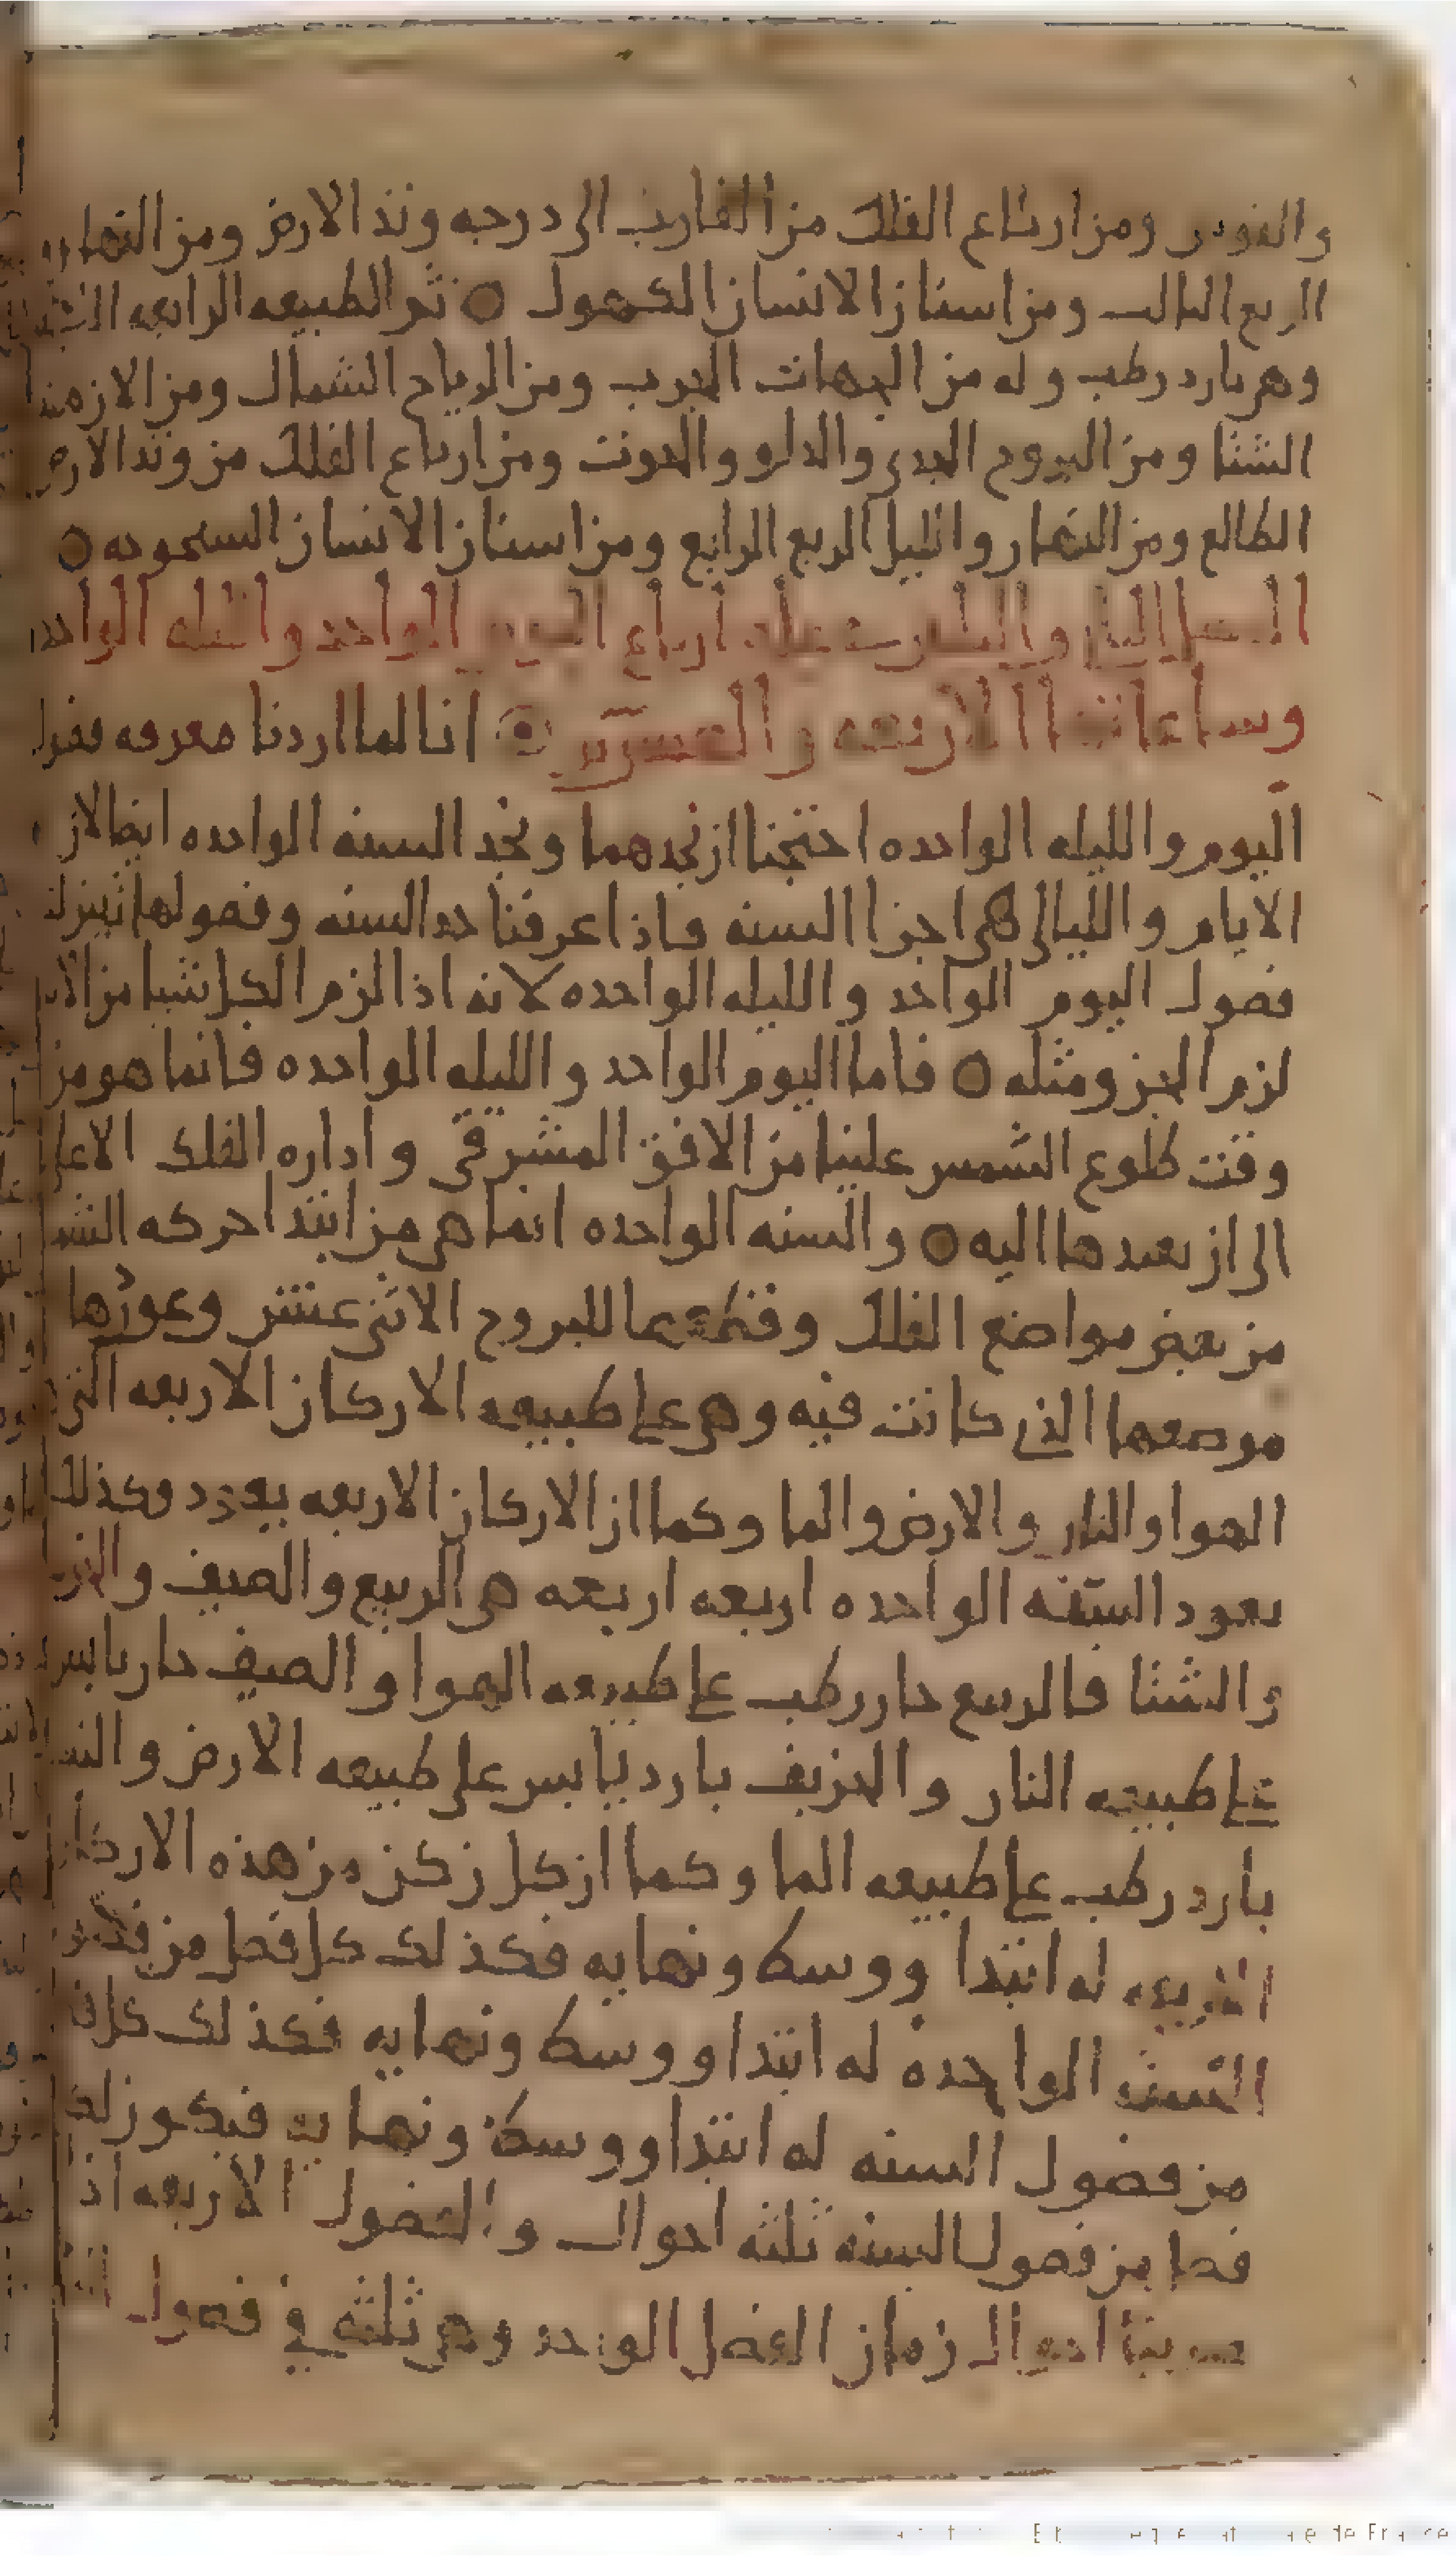 والقوس ومن ارباع الفلك من الغارب الى درجه وتد الارض ومن النهار
الربع الثالث ومن اسنان الانسان الكهول ○ ثم الطبيعه الرابعه
وهى بارد رطب وله من الجهات ومن الرياح الشمال ومن الازمنه
الشتا ومن البروج الجدى والدلو والحوت ومن ارباع الفلك من وتد الارض
الطالع ومن النهار والليل الربع الرابع ومن اسنان الانسان الشيخوخه ○
ارباع اليوم الواحد والليله الواحده
وساعاتهما الاربعه والعشرين انا لما اردنا معرفه فصول
اليوم والليله الواحده احتجنا ان نحدهما ونحد السنه الواحده ايضا لان
الايام والليالى هى اجزا السنه فاذا عرفنا حد السنه وفصولها تبين لنا
فصول اليوم الواحد والليله الواحده لانه اذا لزم الكل شيا من
لزم الجزو مثله ○ فاما اليوم الواحد والليله الواحده فانما هو من
وقت طلوع الشمس علينا من الافق المشرقى واداره الفلك الاعلى
الى ان يعيدها اليه ○ والسنه الواحده انما هى من ابتدا حركه الشمس
من بعض مواضع الفلك وقطعها للبروج الاثنى عشر وعودها
موضعها الذى كانت فيه وهى على طبيعه الاركان الاربعه التى
الهوا والنار والارض والما وكما ان الاركان الاربعه وكذلك
السنه الواحده اربعه اربعه هى الربيع والصيف والخريف
والشتا فالربيع حار رطب على طبيعه الهوا والصيف حار يابس
على طبيعه النار والخريف بارد يابس على طبيعه الارض والشتا
بارد رطب على طبيعه الما وكما ان كل ركن من هذه الاركان
الاربعه له ابتدا ووسط ونهايه فكذلك كل فصل من فصول
السنه الواحده له ابتدا ووسط ونهايه فكذلك كل
من فصول السنه له ابتدا ووسط ونهايه فيكون لكل
فصل من فصول السنه ثلثه احوال والفصول الاربعه اذا
احوال زمان الفصل الواحد وهى ثلثه فى فصول